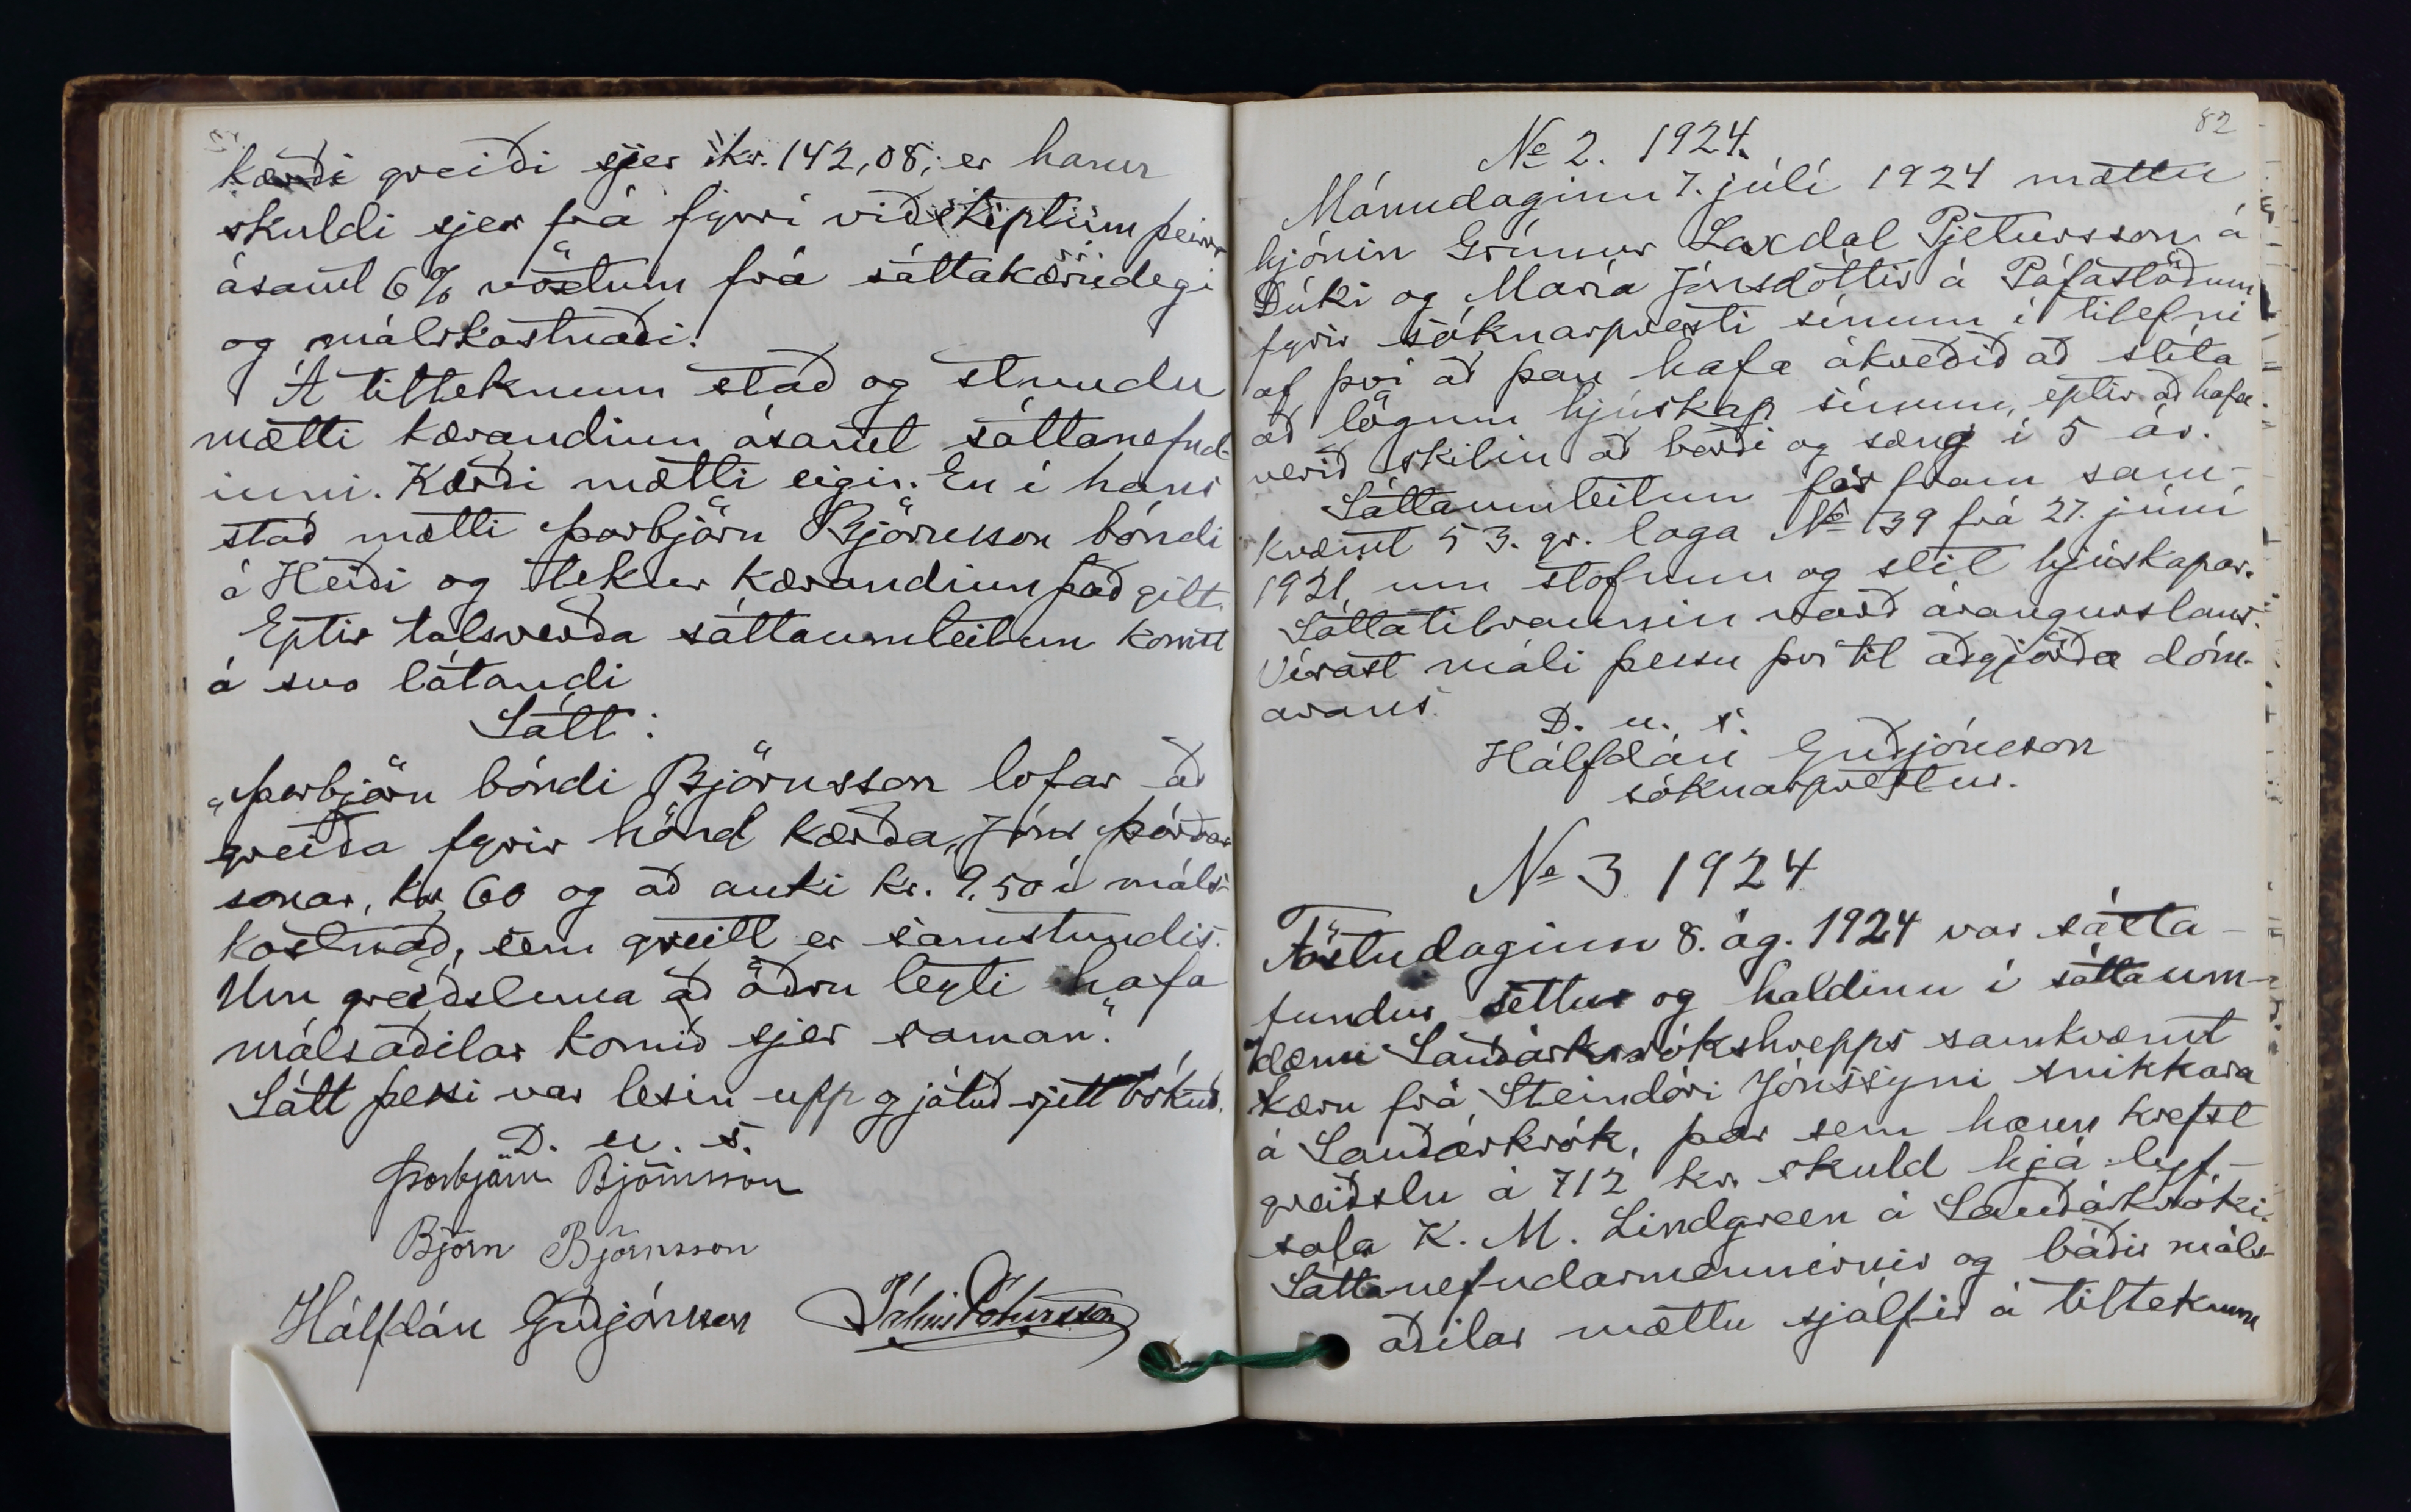 kærði greiði sjer kr. 142,08; er hann
skuldi sjer frá fyrri viðskiptum þeirra
ásamt 6% vöxtum frá sáttakærudegi
og málskostnaði.
Á tilteknum stað og stundu
mætti kærandinn ásamt sáttanefnd-
inni. Kærði mætti eigi. En í hans
stað mætti Þorbjörn Björnsson bóndi
á Heiði og tekur kærandinn það gilt.
Eptir talsverða sáttaumleitun komst
á svo látandi
Sátt:
„Þorbjörn bóndi Björnsson lofar að
greiða fyrir hönd kærða, Jóns Þórðar
sonar, kr 60 og að auki kr. 9.50 í máls-
kostnað, sem greitt er samstundis.
Um greiðsluna að öðru leyti hafa
málsaðilar komið sjer saman."
Sátt þessi var lesin upp og játuð rjett bókuð.
D. u. s.
Þorbjörn Björnsson
Björn Björnsson
Hálfdán Guðjónsson Pálmi Pétursson
82
№ 2. 1924.
Mánudaginn 7. júlí 1924 mættu
hjónin Grímur Laxdal Pjetursson á
Dúki og María Jónsdóttir á Páfastöðum
fyrir sóknarpresti sínum í tilefni
af því að þau hafa ákveðið að slíta
að lögum hjúskap sínum, eptir að hafa
verið skilin að borði og sæng í 5 ár.
Sáttaumleitun fór fram sam-
kvæmt 53. gr. laga № 39 frá 27. júní
1921, um stofnun og slit hjúskapar.
Sáttatilraunin varð árangurslaus.
Vísast máli þessu því til aðgjörða dóm-
arans.
D. u. s.
Hálfdán Guðjónsson
sóknarprestur.
№ 3 1924
Föstudaginn 8. ág. 1924 var sátta-
fundur settur og haldinn í sáttaum-
dæmi Sauðárkrókshrepps samkvæmt
kæru frá Steindóri Jónssyni snikkara
á Sauðárkrók, þar sem hann krefst
greiðslu á 712 kr. skuld hjá lyf-
sala K. M. Lindgreen á Sauðárkróki.
Sáttanefndarmennirnir og báðir máls-
aðilar mættu sjálfir á tilteknum